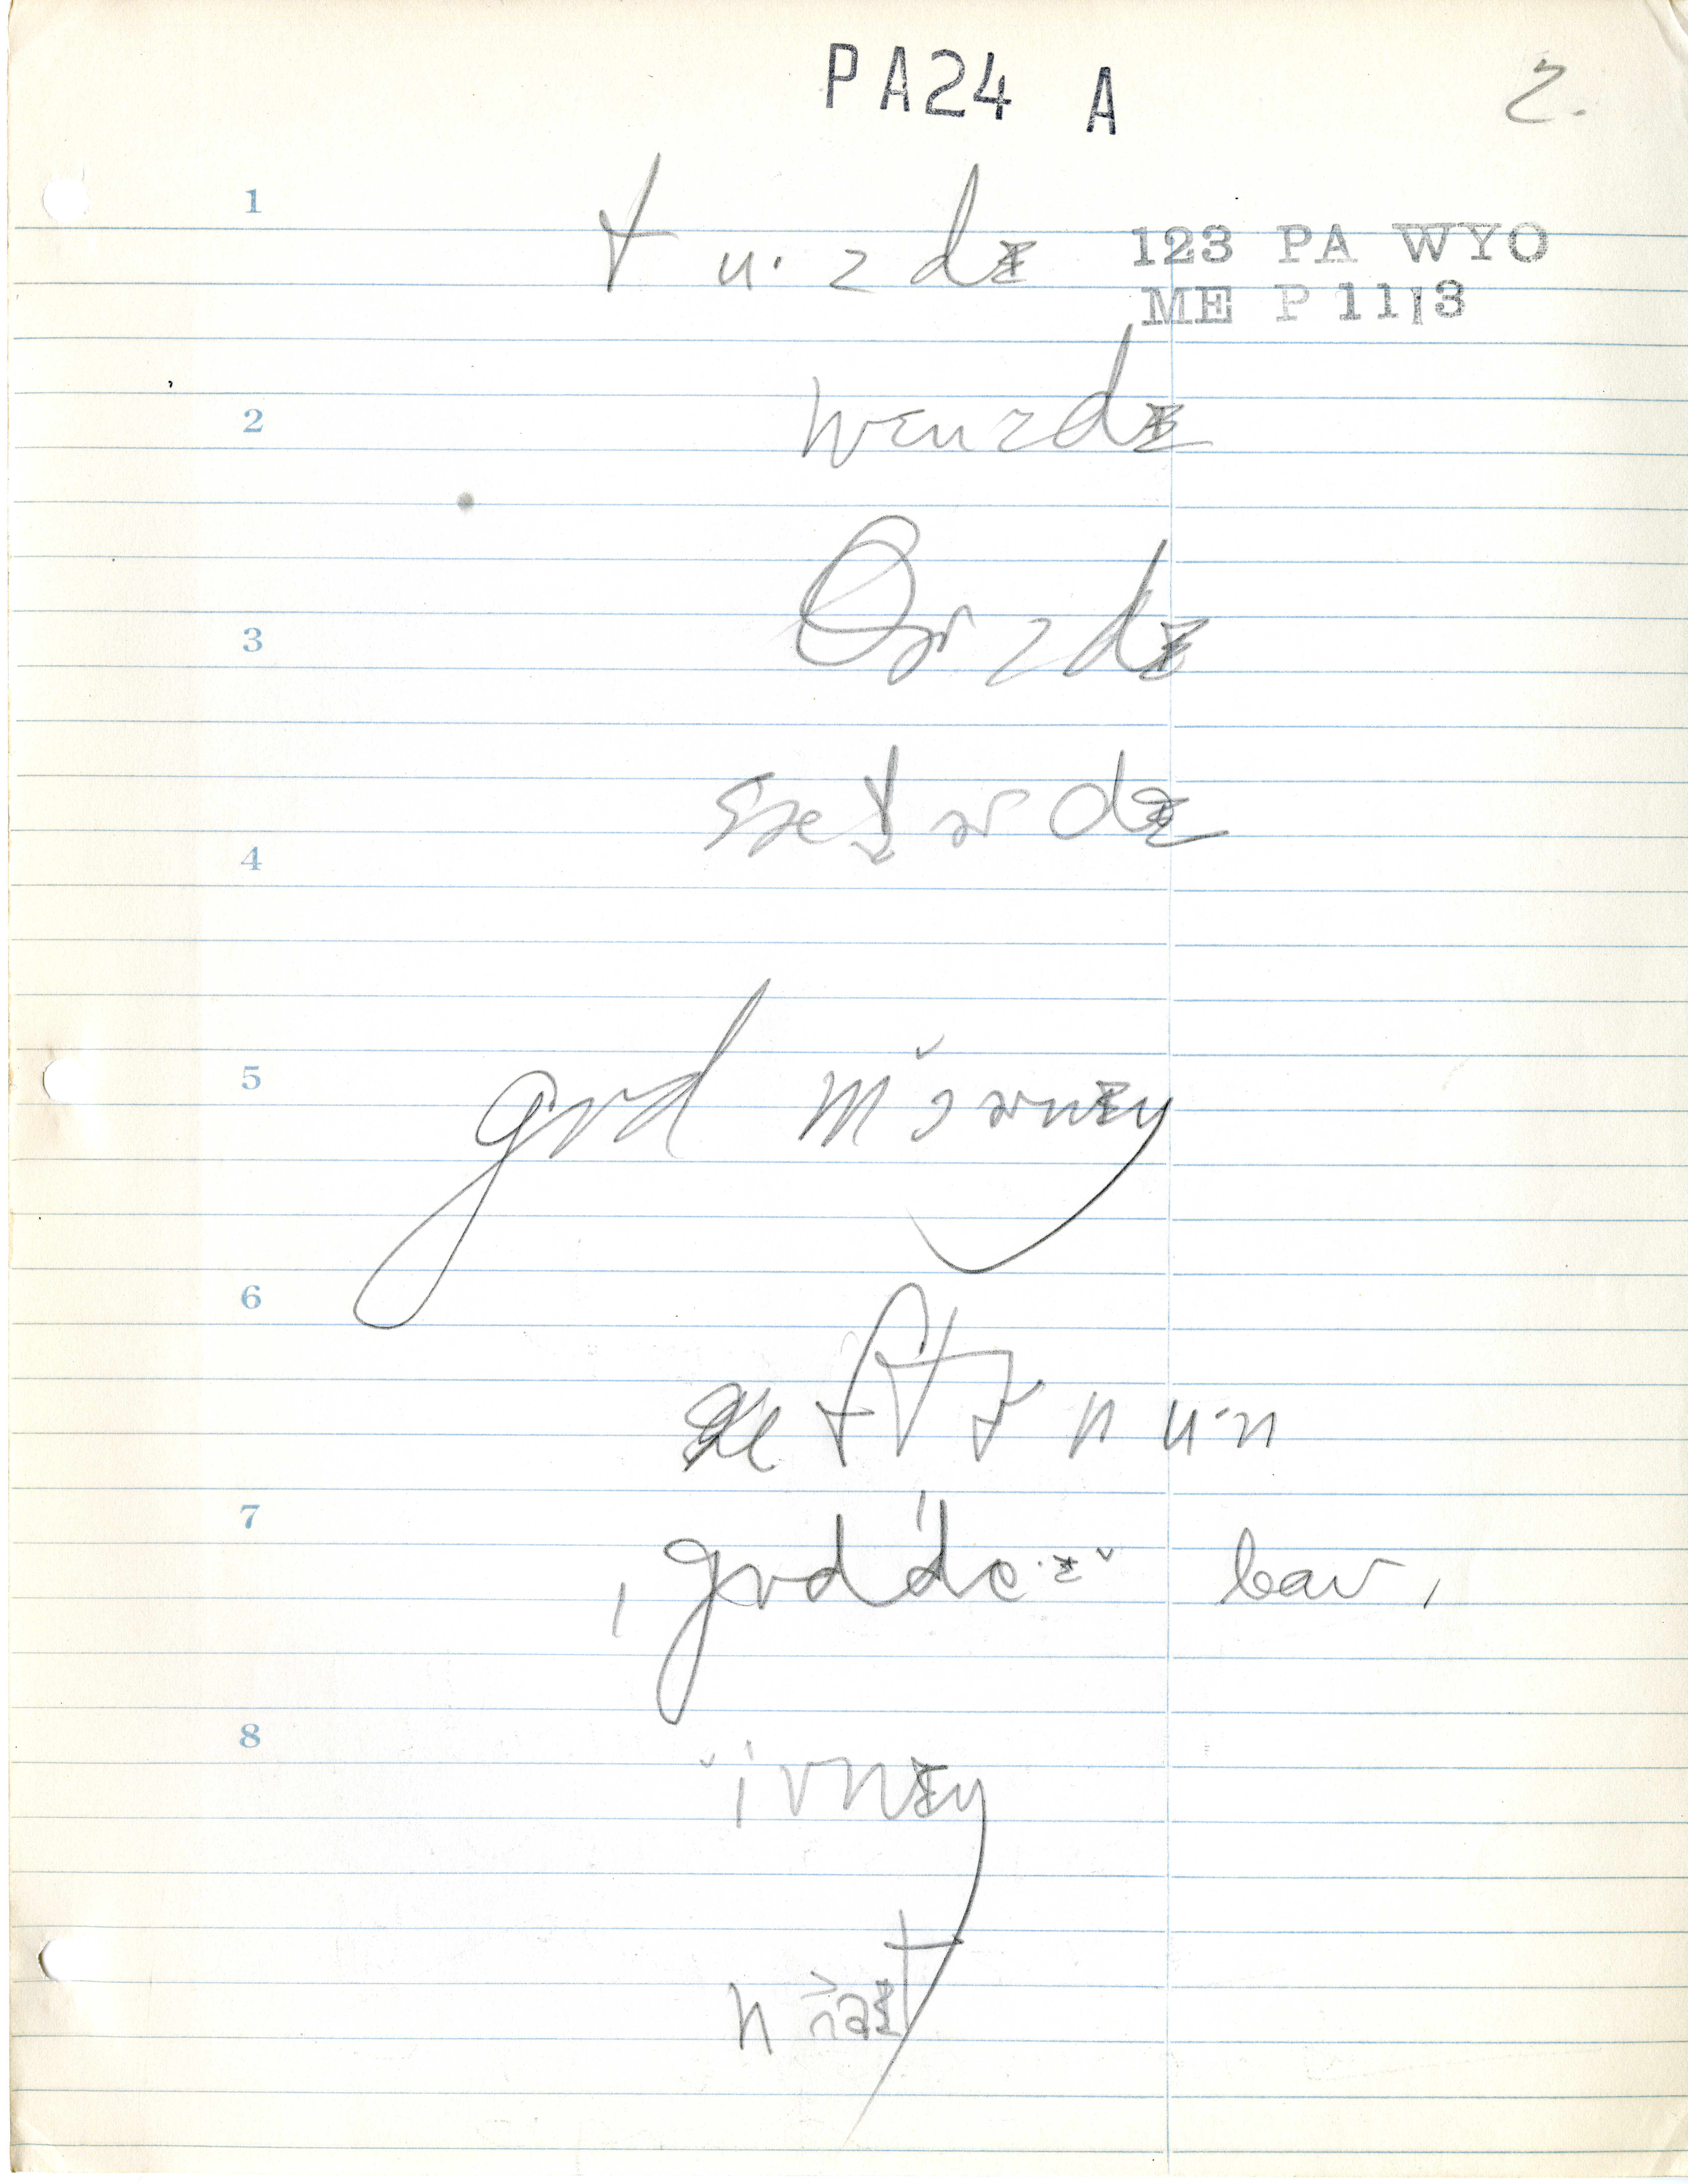 PA24 A 2.
1 tu·zdɪ 123 PA WYO
ME P 11|3
2 wɛnzdɪ
3 θɚzdɪ
4
5 gʊd mɔɚnɪŋ
6 æftɚnu·n
7 , gʊd'de·ɪ baʊ,
8 ivnɪŋ
naɪt